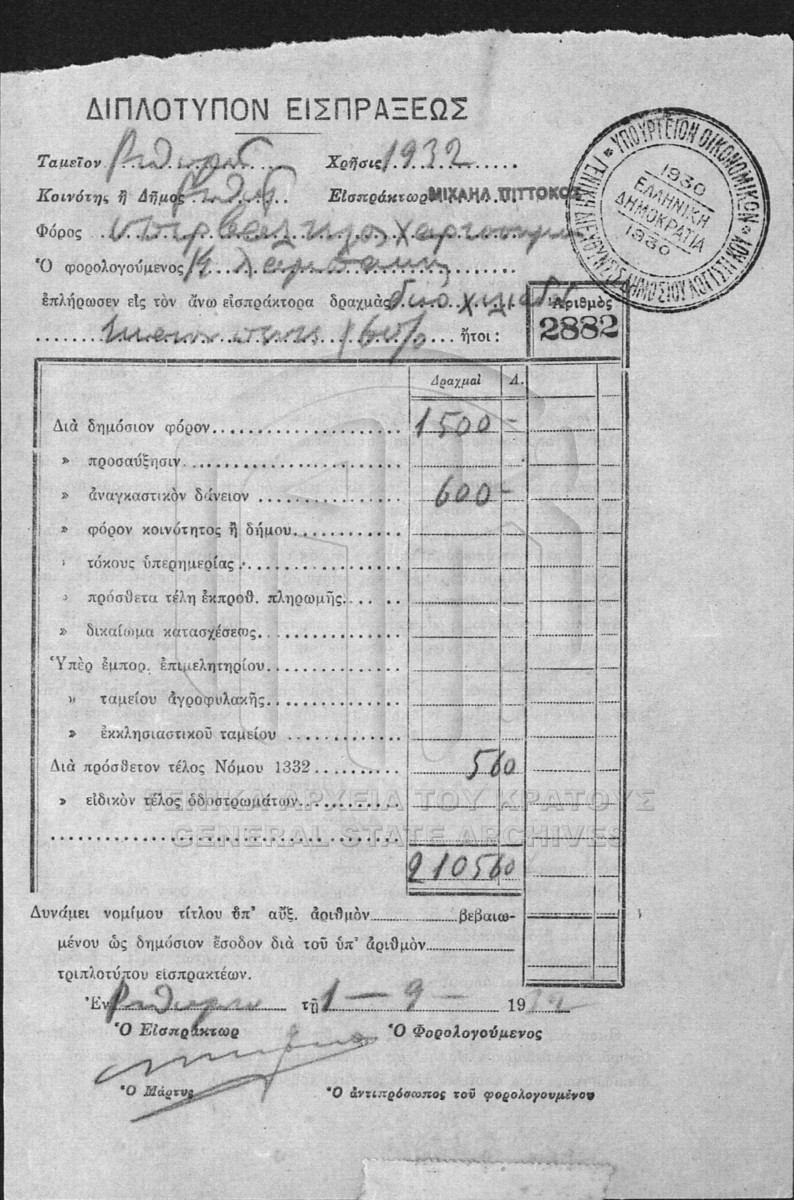 ΔΙΠΛΟΤΥΠΟΝ ΕΙΣΠΡΑΞΕΩΣ
Ταμεῖον Χρῆσις 1932
Κοινότης ἢ Δῆμος Εἰσπράκτωρ ΜΙΧΑΗΛ ΠΙΤΤΟΚΟΣ
Φόρος
Ὁ φορολογούμενος
ἐπλήρωσεν εἰς τὸν ἄνω εἰσπράκτορα δραχμὰς δύο χιλιάδες
ἑκατὸν πέντε 60% ἤτοι:
Ἀριθμὸς
2882
ΥΠΟΥΡΓΕΙΟΝ ΟΙΚΟΝΟΜΙΚΩΝ
1930
ΕΛΛΗΝΙΚΗ
ΔΗΜΟΚΡΑΤΙΑ
1930
Δραχμαὶ Λ.
Διὰ δημόσιον φόρον 1500 -
» προσαύξησιν
» ἀναγκαστικὸν δάνειον 600 -
» φόρον κοινότητος ἢ δήμου
» τόκους ὑπερημερίας
» πρόσθετα τέλη ἐκπροθ. πληρωμῆς
» δικαίωμα κατασχέσεως
Ὑπὲρ ἐμπορ. ἐπιμελητηρίου
» ταμείου ἀγροφυλακῆς
» ἐκκλησιαστικοῦ ταμείου
Διὰ πρόσθετον τέλος Νόμου 1332 5 60
» εἰδικὸν τέλος ὁδοστρωμάτων
ΓΕΝΙΚΑ ΑΡΧΕΙΑ ΤΟΥ ΚΡΑΤΟΥΣ
GENERAL STATE ARCHIVES
2105 60
Δυνάμει νομίμου τίτλου ὑπ' αὔξ. ἀριθμὸν βεβαιω-
μένου ὡς δημόσιον ἔσοδον διὰ τοῦ ὑπ' ἀριθμὸν
τριπλοτύπου εἰσπρακτέων.
Ἐν Ρεθύμνῳ τῇ 1 - 9 - 1932
Ὁ Εἰσπράκτωρ Ὁ Φορολογούμενος
Ὁ Μάρτυς Ὁ ἀντιπρόσωπος τοῦ φορολογουμένου